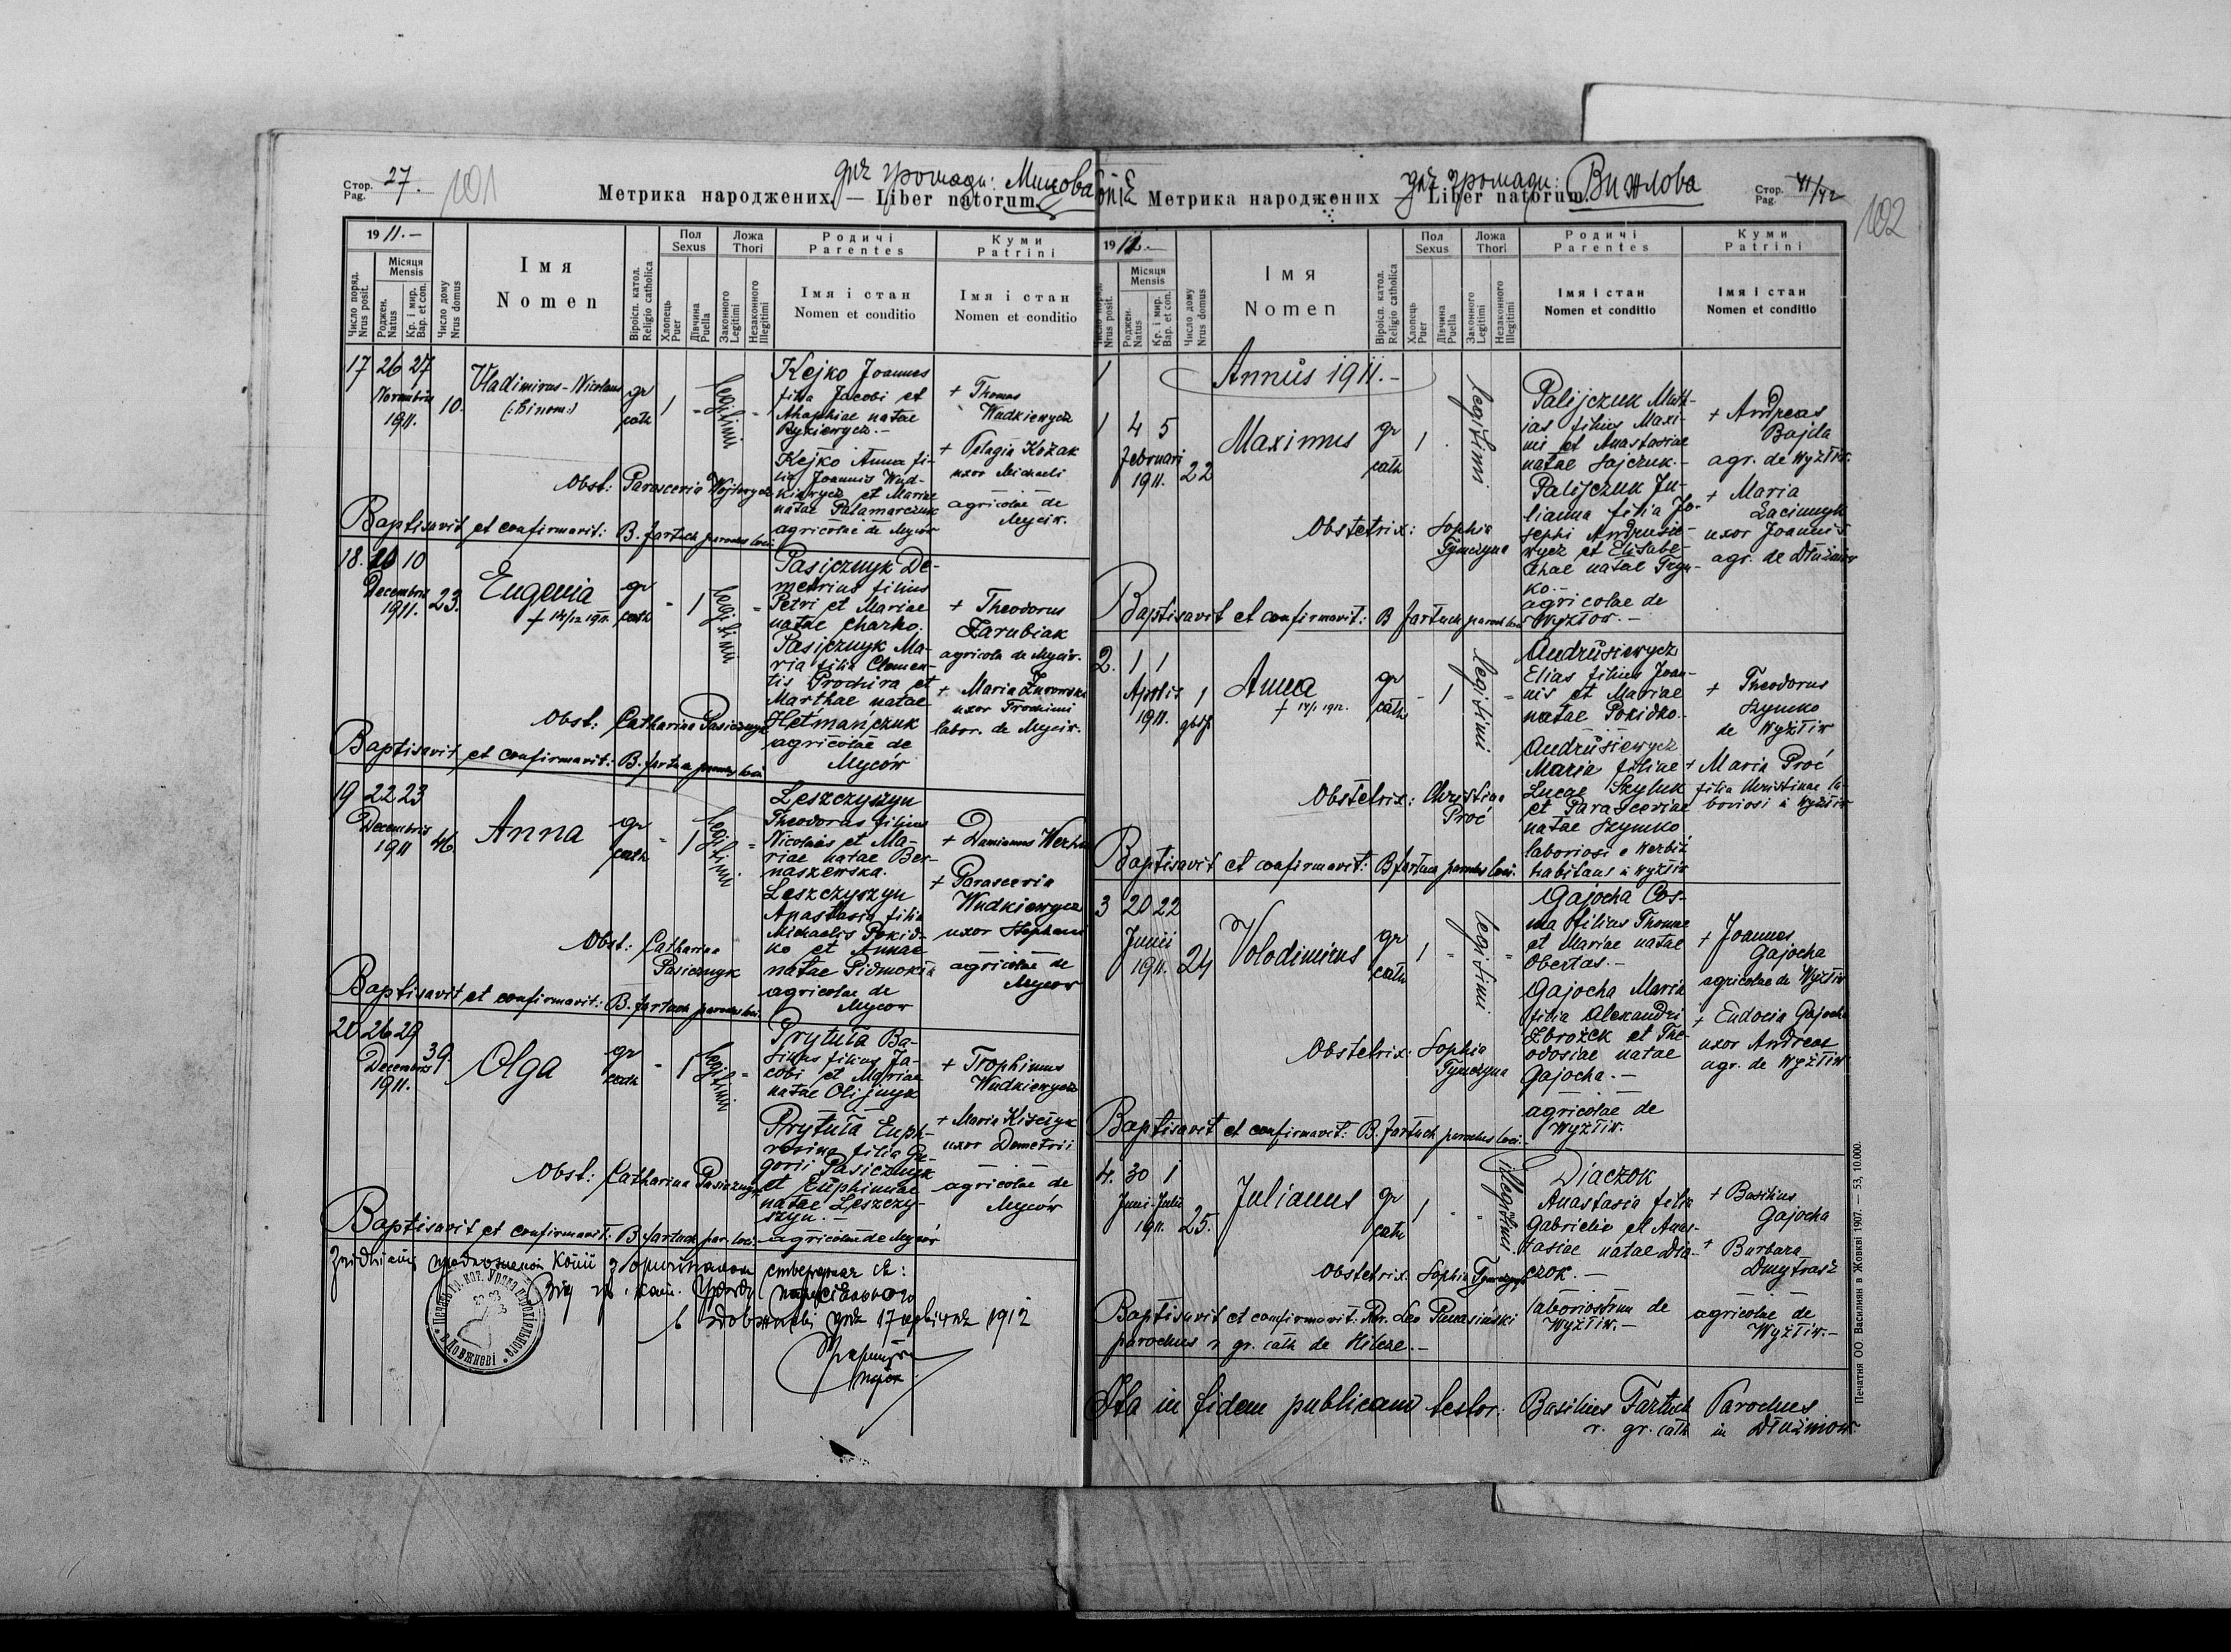 Стор. Pag. 27.
101
для громади: Мицова
Метрика народжених — Liber natorum.
1911.—
Число поряд. Nrus posit.
Місяця Mensis
Роджен. Natus
Кр. і мир. Bap. et con.
Число дому Nrus domus
Імя Nomen
Віроісп. катол. Religio catholica
Пол Sexus
Хлопець Puer
Дівчина Puella
Ложа Thori
Законного Legitimi
Незаконного Illegitimi
Родичі Parentes
Імя і стан Nomen et conditio
Куми Patrini
Імя і стан Nomen et conditio
17 26 27 Novembris 1911. 10.
Vladimirus-Nicolaus
(:binom:)
gr cath 1 - legitimi -
Kejko Joannes
filius Jacobi et
Ahaphiae natae
Rykiewycz.—
Kejko Anna fi-
lia Joannis Wud-
kiewycz et Mariae
natae Palamarczuk
agricolae de Myców
+ Thomas
Wudkiewycz
+ Pelagia Kożak
uxor Michaeli
agricolae de
Myciw.
Obst: Parasceria Wojtowycz
Baptisavit et confirmavit: B. Fartuch parochus loci.
18. 10 10 Decembris 1911. 23.
Eugenia
+ 14/12 1911.
gr cath - 1 legitimi -
Pasicznyk De-
metrius filius
Petri et Mariae
natae Charko.
Pasicznyk Ma-
ria filia Clemen-
tis Prochira et
Marthae natae
Hetmańczuk
agricolae de
Myców
+ Theodorus
Zarubiak
agricola de Myciw.
+ Maria Żurowska
uxor Trochimi
labor. de Myciw.
Obst: Catharina Pasicznyk
Baptisavit et confirmavit: B. Fartuch parochus loci
19 22 23 Decembris 1911 46.
Anna
gr cath - 1 legitimi -
Leszczyszyn
Theodorus filius
Nicolais et Ma-
riae natae Ber-
naszewska.
Leszczyszyn
Anastasia filia
Michaelis Pokid-
ko et Annae
natae Pidmokła
agricolae de
Mycow
+ Damianus Werhun
+ Parasceria
Wudkiewycz
uxor Stephani
agricolae de
Mycow
Obst: Catharina
Pasicznyk
Baptisavit et confirmavit: B. Fartuch parochus loci.
20 26 29 Decembris 1911. 39
Olga
gr cath - 1 legitimi -
Prytuła Ba-
silius filius Ja-
cobi et Mariae
natae Olijnyk
Prytuła Euph-
rosina filia Gre-
gorii Pasicznyk
et Euphimiae
natae Leszczy-
szyn.—
agricolae de Myców
+ Trophimus
Wudkiewycz
+ Maria Kiścijuk
uxor Demetrii
agricolae de
Myców
Obst: Catharina Pasicznyk
Baptisavit et confirmavit: B. Fartuch par. loci.
копії з оригіналом стверджає ся:
гр. кат. Уряд парохіяльного
дня 17 1912
парох
102
для громади: Вижлова
Метрика народжених — Liber natorum.
Стор. Pag. 41/42
1911.—
Число поряд. Nrus posit.
Місяця Mensis
Роджен. Natus
Кр. і мир. Bap. et con.
Число дому Nrus domus
Імя Nomen
Віроісп. катол. Religio catholica
Пол Sexus
Хлопець Puer
Дівчина Puella
Ложа Thori
Законного Legitimi
Незаконного Illegitimi
Родичі Parentes
Імя і стан Nomen et conditio
Куми Patrini
Імя і стан Nomen et conditio
Annus 1911.—
1 4 5 Februari 1911. 22
Maximus
gr cath 1 . legitimi
Palijczuk Matt-
ias filius Maxi-
mi et Anastasiae
natae Sajczuk.—
Palijczuk Ju-
lianna filia Jo-
sephi Andrusie-
wycz et Elisabe-
thae natae Tryn-
ko.—
agricolae de
Wyżłow.—
+ Andreas
Bajda
agr. de Wyżłiw
+ Maria
Lacinnyk
uxor Joannis
agr. de Dłużniów
Obstetrix: Sophia
Tymczyna
Baptisavit et confirmavit: B Fartuch paroch loci
2. 1 1 Aprilis 1911. 1
Anna
+ 14/1 1912.
gr cath - 1 legitimi -
Andrusiewycz
Elias filius Joan-
nis et Mariae
natae Pokidko.
Andrusiewycz
Maria filiae
Lucae Szyluk
et Parasceviae
natae Szymko
laboriosi e Werbiż
habitans in Wyżłiw
+ Theodorus
Szymko
de Wyżłiw
+ Maria Proć
filia Christinae la-
boriosi a Wyżłiw
Obstetrix: Christina
Proć
Baptisavit et confirmavit: B Fartuch parochus loci.
3 20 22 Junii 1911. 24
Volodimirus
gr cath 1 - legitimi -
Gajocha Cos-
ma filius Thomae
et Mariae natae
Obertas.—
Gajocha Maria
filia Alexandri
Zbrożek et The-
odosiae natae
Gajocha.—
agricolae de
Wyżłiw.
+ Joannes
Gajocha
agricolae de Wyżłiw
+ Eudocia Gajocha
uxor Andreae
agr. de Wyżłiw
Obstetrix: Sophia
Tymczyna
Baptisavit et confirmavit: B. Fartuch parochus loci.
4. 30 1 Juni Julii 1911. 25.
Julianus
gr cath 1 - - illegitimi
Diaczok
Anastasia filia
Gabrielis et Anas-
tasiae natae Dia-
czok.—
laboriosorum de
Wyżłiw.—
+ Basilius
Gajocha
+ Barbara
Dmytrasz
agricolae de
Wyżłiw.—
Obstetrix: Sophia Tymczyna
Baptisavit et confirmavit: Rev. Leo Panasiński
parochus r. gr. cath de Hilcze.—
Ita in fidem publicam testor: Basilius Fartuch Parochus
r. gr. cath in Dłużniow.
Печатня ОО. Василиян в Жовкві 1907. — 53, 10.000.